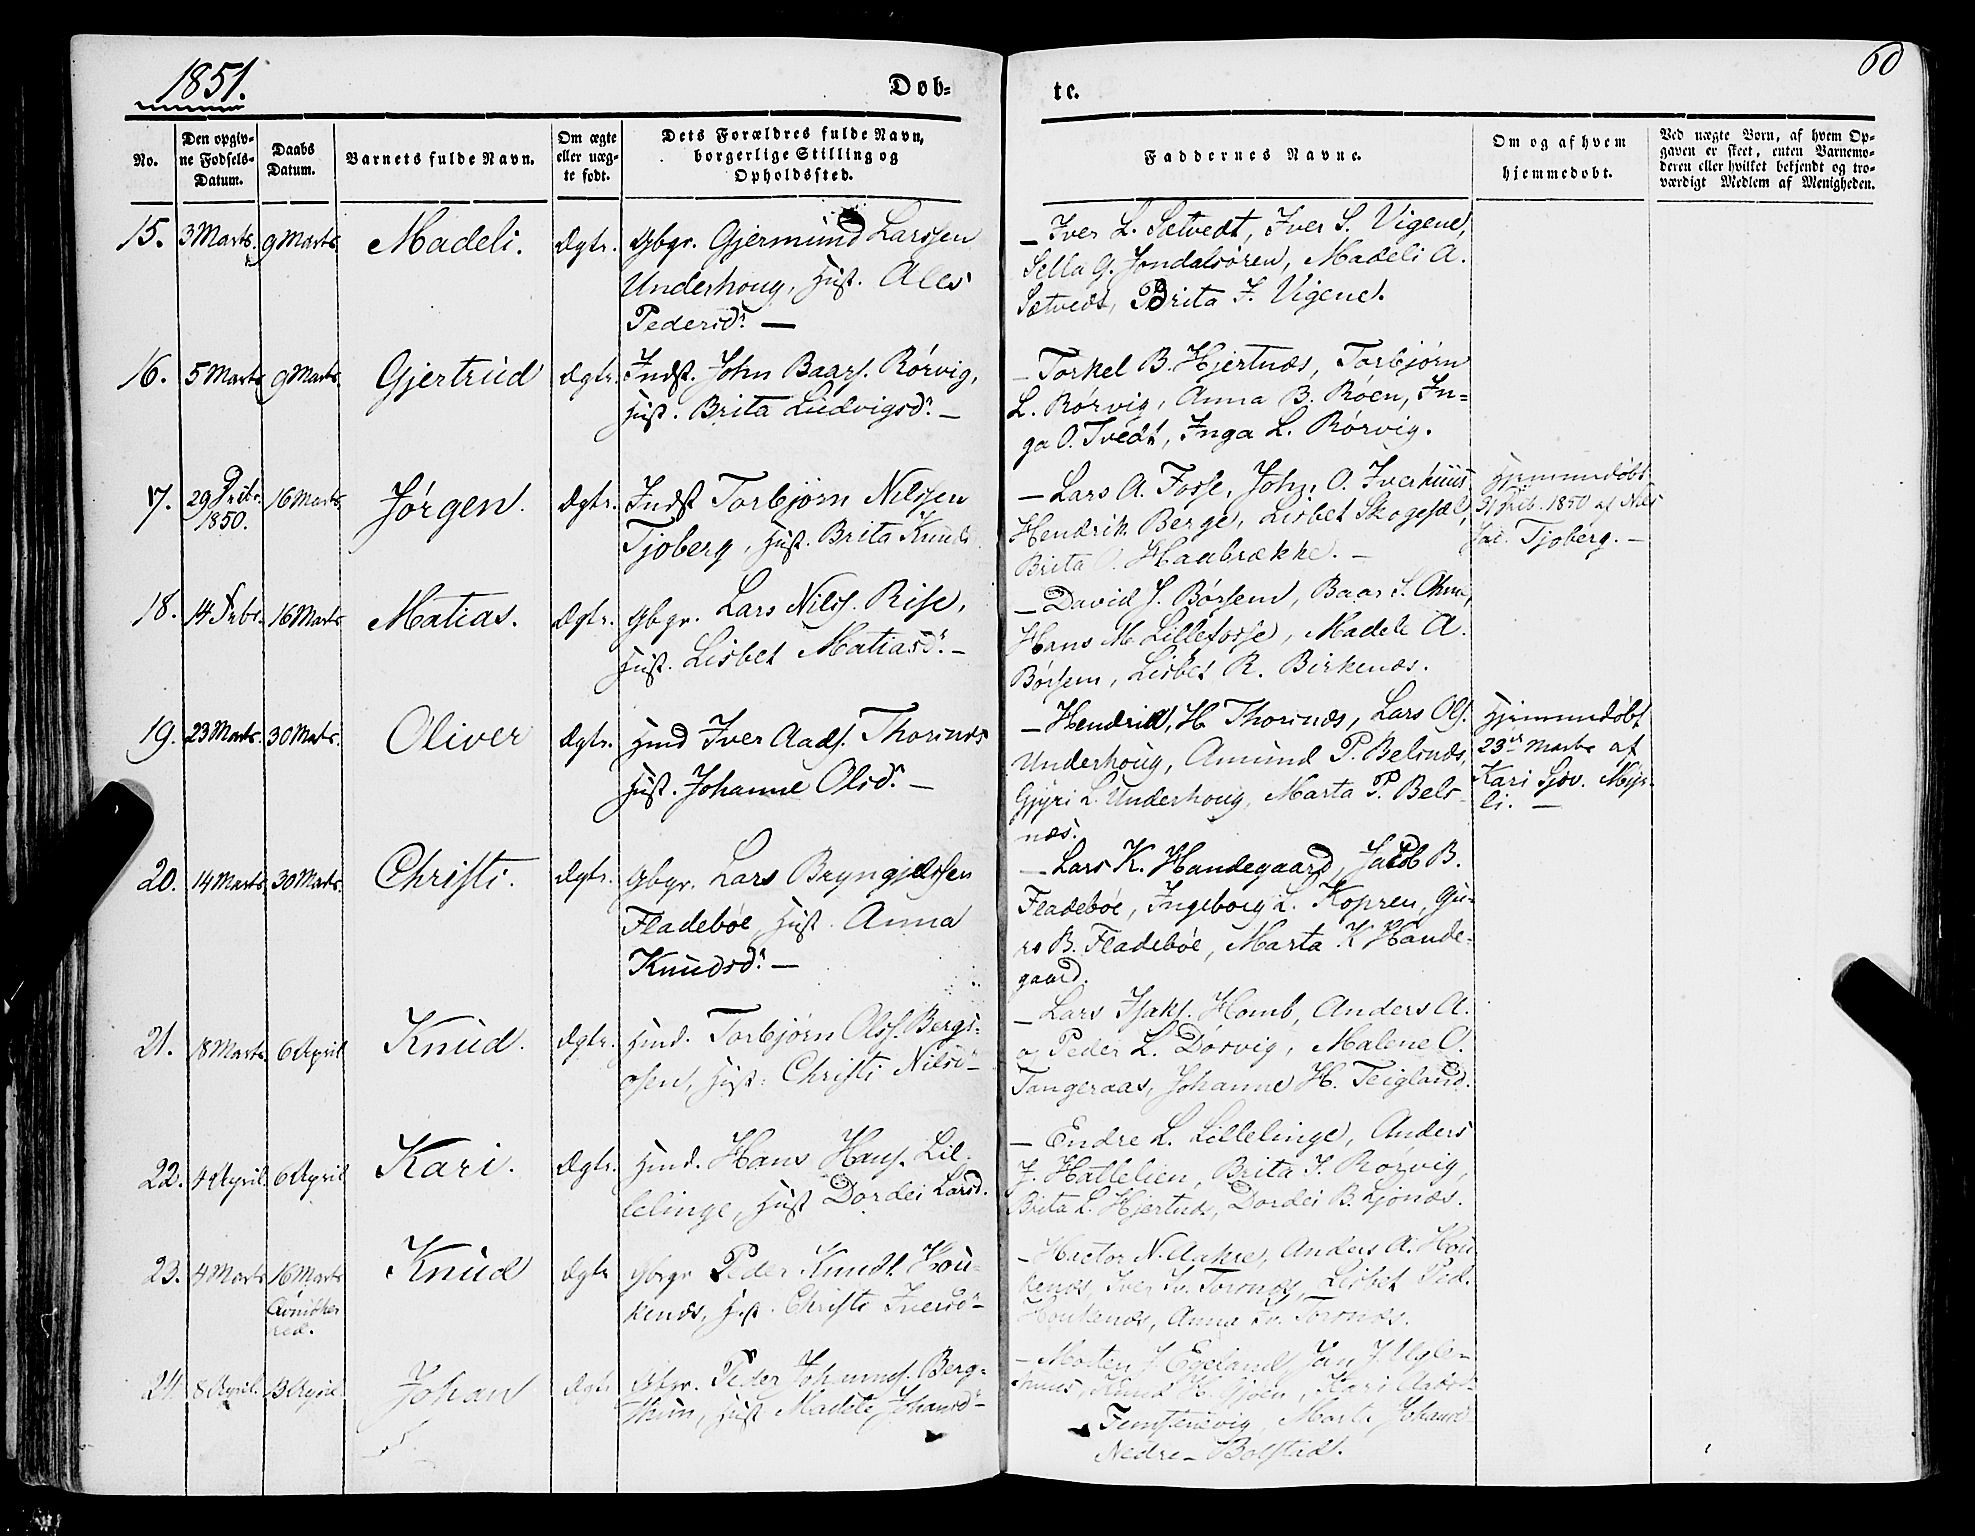 1851.
Døb-
te.
60
No.
Den opgiv-
ne Fødsels-
Datum.
Daabs
Datum.
Barnets fulde Navn.
Om ægte
eller uæg-
te født.
Dets Forældres fulde Navn,
borgerlige Stilling og
Opholdssted.
Faddernes Navne.
Om og af hvem
hjemmedøbt.
Ved uægte Børn, af hvem Op-
gaven er skeet, enten Barnemo-
deren eller hvilket bekjendt og tro-
værdigt Medlem af Menigheden.
15. 3 Marts. 9 Marts. Madeli. Ægte. Gbgr. Gjermund Larssen
Underhoug, Hust. Ales
Pedersd. —
— Iver L. Sætvedt, Iver S. Vigene,
Sella G. Jondalsøren, Madeli A.
Sætvedt, Brita I. Vigene.
16. 5 Marts 9 Marts. Gjertrud Ægte. Indst. John Baars. Rørvig,
Hust. Brita Ludvigsd. —
— Torkel B. Hjertnæs, Torbjørn
L. Rørvig, Anna B. Røen, In-
ga O. Tvedt, Inga L. Rørvig.
17. 29 Decbr. 1850. 16 Marts. Jørgen. Ægte. Indst Torbjørn Nilssen
Tjoberg, Hust. Brita Knuds
— Lars A. Fosse, John O. Iverhuus
Hendrik Berge, Lisbet Skogesæl,
Brita O. Haabrække. —
Hjemmedøbt
31 Decb. 1850 af Nils
Jac. Tjoberg. —
18. 14 Febr. 16 Marts Matias. Ægte. Gbgr. Lars Nilss. Rise,
Hust. Lisbet Matiasd. —
— David J. Børsem, Baar S.
Hans M. Lillefosse, Madele A.
Børsem, Lisbet R. Birkenæs.
19. 23 Marts. 30 Marts. Oliver Ægte. Hmd Iver Aads. Thorsnæs
Hust. Johanne Olsd. —
— Hendrik H. Thorsnæs, Lars Ols.
Underhoug, Amund P. Belsnæs,
Gjyri L. Underhoug, Marta P. Bels-
næs.
Hjemmedøbt
23de Marts af
Kari Sjov. Myr-
li. —
20. 14 Marts 30 Marts. Christi. Ægte. Gbgr. Lars Bryngjelssen
Fladebøe, Hust. Anna
Knudsd. —
— Lars K. Handegaard, Jacob B.
Fladebøe, Ingeborg L. Kopren, Gu-
ro B. Fladebøe, Marta K. Hande-
gaard.
21. 18 Marts. 6 April Knud. Ægte. Hmd. Torbjørn Olss. Bergs-
osen, Hust. Christi Nilsd —
— Lars Isaks. Homb, Anders A.
og Peder L. Dørvig, Malene O.
Tangeraas, Johanne H. Teigland.
22. 4 April. 6 April Kari. Ægte. Hmd. Hans Hans. Lil-
lelinge, Hust Dordei Larsd.
— Endre L. Lillelinge, Anders
J. Hattelien, Brita I. Rørvig,
Brita L. Hjertnæs, Dordei B. Ljonæs.
23. 4 Marts 16 Marts Knud Ægte Gbgr Peder Knuds. Hou-
kenæs, Hust. Christi Iversd —
— Hector N. Aakre, Anders A. Hou-
kenæs, Iver Iv. Torsnæs, Lisbet Ped.
Houkenæs, Anna Iv. Torsnæs.
24 8 April. Johan Ægte Gbgr. Peder Johannes. Berg-
thun, Hust Madele Johansd —
— Mosten J. Egeland, Jan J.
Kari
Femstenevig, Marta
Nedre- Bolstad.